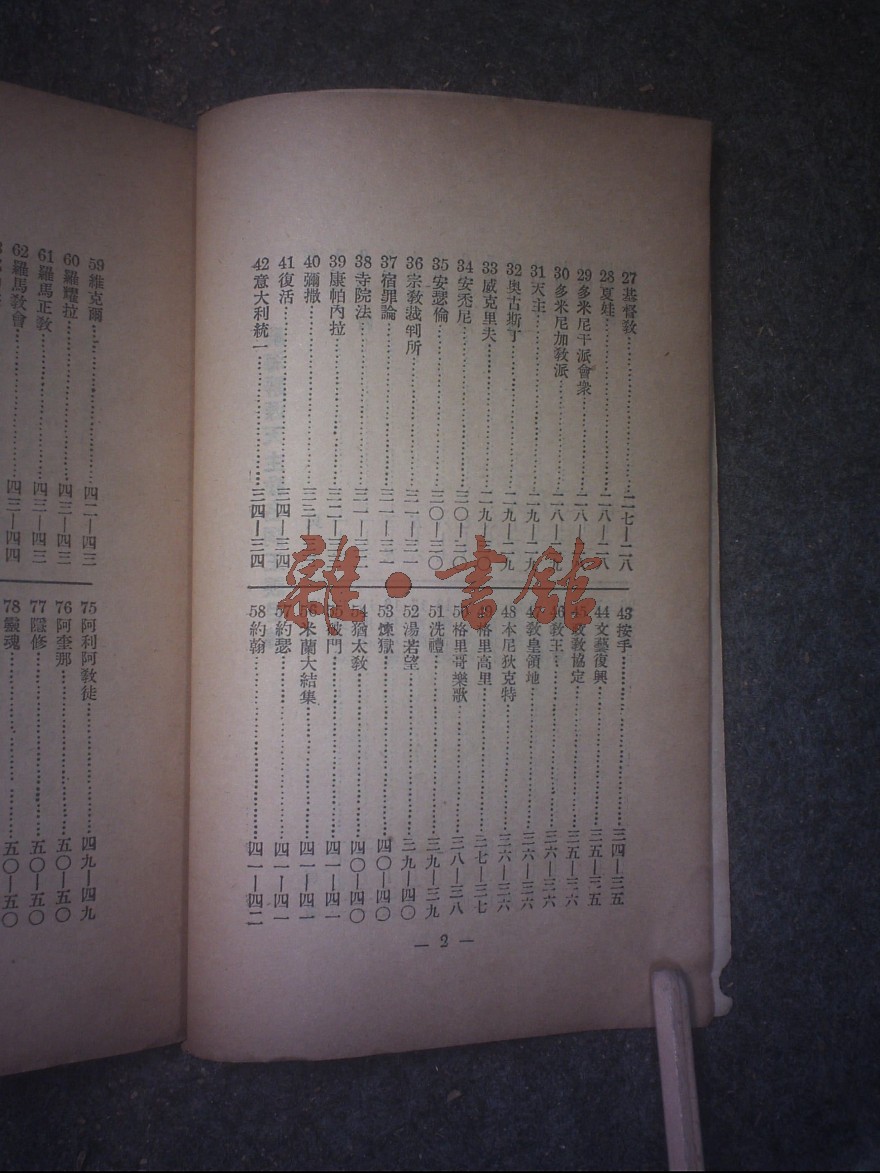 27基督敎……二七—二八
28夏娃……二八—二八
29多米尼干派會衆……二八—二八
30多米尼加敎派……二八—二九
31天主……二九—二九
32奥古斯丁……二九—二九
33威克里夫……二九—三〇
34安禿尼……三〇—三〇
35安瑟倫……三〇—三〇
36宗敎裁判所……三一—三一
37宿罪論……三一—三一
38寺院法……三一—三二
39康帕內拉……三二—三三
40彌撒……三三—三三
41復活……三四—三四
42意大利統一……三四—三四
43按手……三四—三五
44文藝復興……三五—三五
45政敎協定……三五—三六
46敎王……三六—三六
47敎皇領地……三六—三六
48本尼狄克特……三六—三六
49格里高里……三七—三七
50格里哥樂歌……三八—三八
51洗禮……三九—三九
52湯若望……三九—四〇
53煉獄……四〇—四〇
54猶太敎……四〇—四〇
55破門……四一—四一
56米蘭大結集……四一—四一
57約瑟……四一—四一
58約翰……四一—四二
— 2 —
59維克爾……四二—四三
60羅耀拉……四三—四三
61羅馬正敎……四三—四三
62羅馬敎會……四三—四四
75阿利阿敎徒……四九—四九
76阿奎那……五〇—五〇
77隱修……五〇—五〇
78靈魂……五〇—五〇
雜·書館